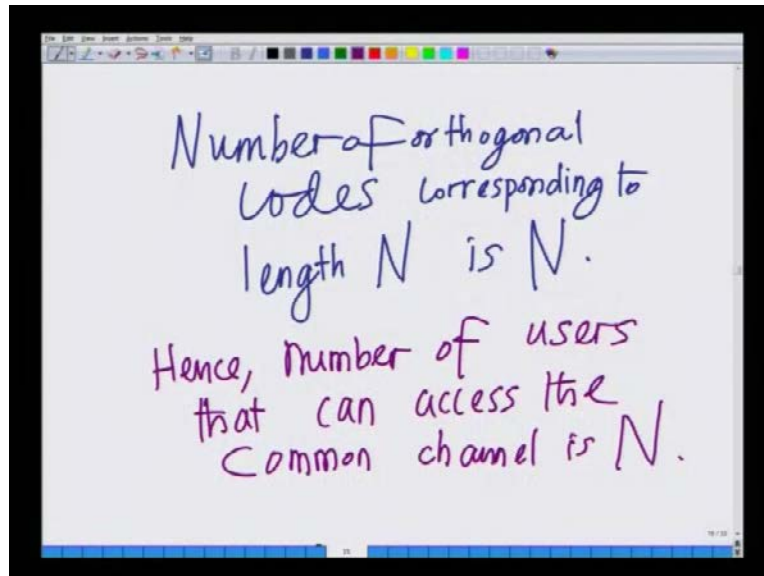 File Edit View Insert Actions Tools Help
Number of orthogonal
codes corresponding to
length N is N.
Hence, number of users
that can access the
common channel is N.